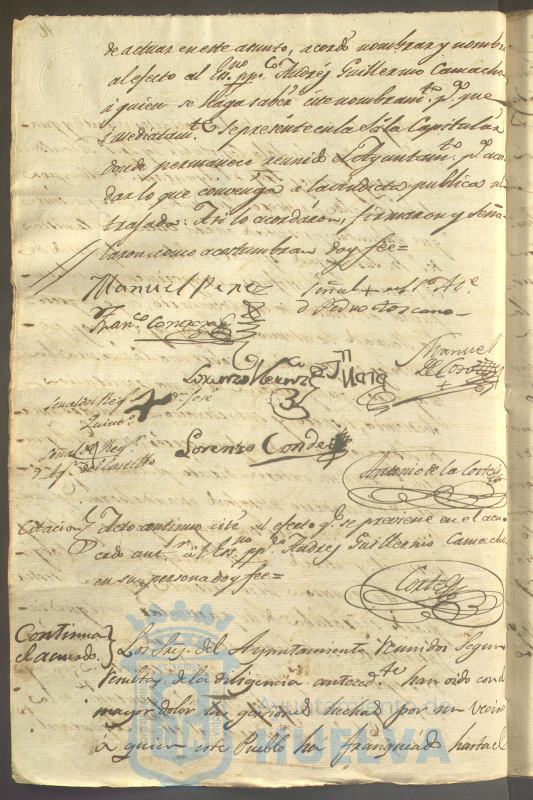 de actuar en este asunto, acordó nombrar y nombró
al efecto al Es.no pp.co Andrés Guillermo Camacho
á quien se haga saber este nombram.to p.a que
inmediatam.te se presente en la Sala Capitular
donde permanece reunido el Ayuntam.to p.a acor
dar lo que convenga á la vindicta publica
trajada: Asi lo acordaron, firmaron y seña
laron como acostumbran doy fee=
Manuel Perez
Señal + del Sr. Alc.e
d. Pedro Toscano
Fran.co
Lorenzo
Manuel
de
Señal del Rex.r + d.n José
Quint.o
Señal del Rex.r
d.n del Castillo
Lorenzo Conde
Antonio de la Corte
Citacion } Acto continuo cité al efecto q.e se previene en el acu
erdo ant.r á el Es.no pp.co Andres Guillermo Camacho
en su persona doy fee=
Corte
Continua
el acuerdo. } Los Sres. del Ayuntamiento reunidos segun
resulta de la diligencia anteced.te han oido con el
mayor dolor las por un vecino
á quien este Pueblo ha franqueado hasta el
Ayuntamiento de
HUELVA